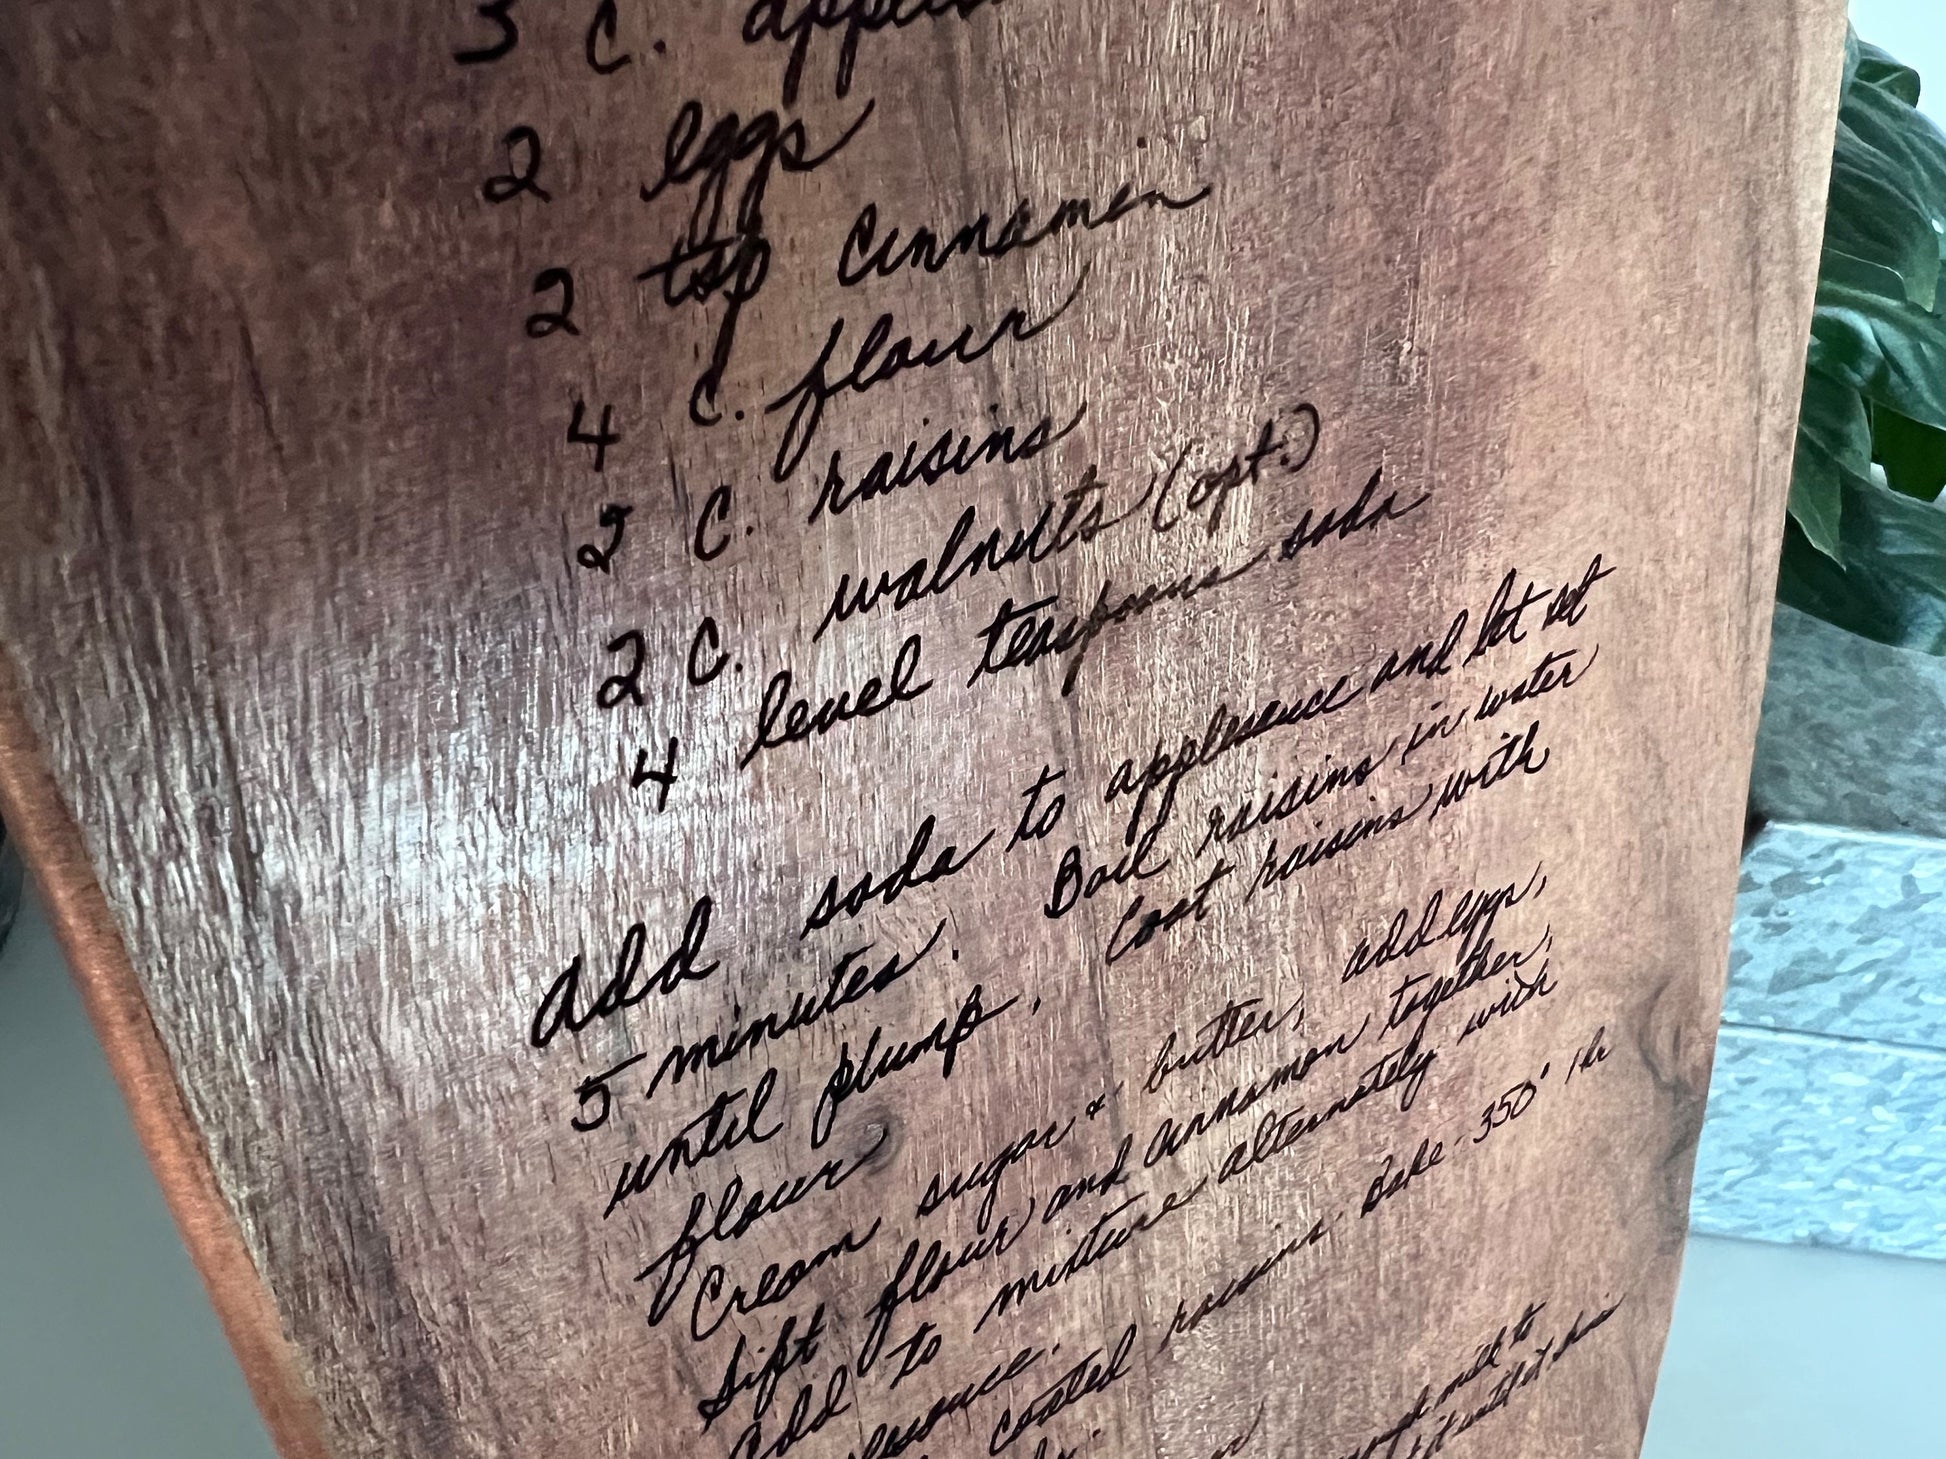 3 C.
2 eggs
2 tsp cinnamon
4 C. flour
2 C. raisins
2 C. walnuts (opt.)
4 level teaspoons soda
Add soda to applesauce and let set
5 minutes. Boil raisins in water
until plump. Coat raisins with
flour
Cream sugar & butter, add eggs,
Sift flour and cinnamon together,
Add to mixture alternately with
coated raisins. Bake 350° 1 hr
milk to
it until it